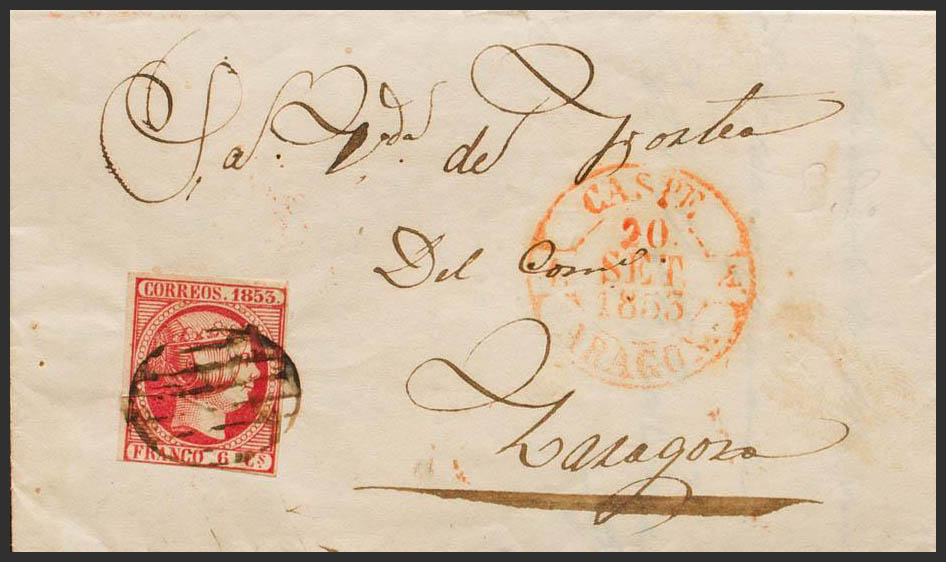 Sa. V.da de Yostea
Del Com.o
Zaragoza
CASPE
20
SET
1853
ARAGON.
CORREOS. 1853.
FRANCO 6 Cs